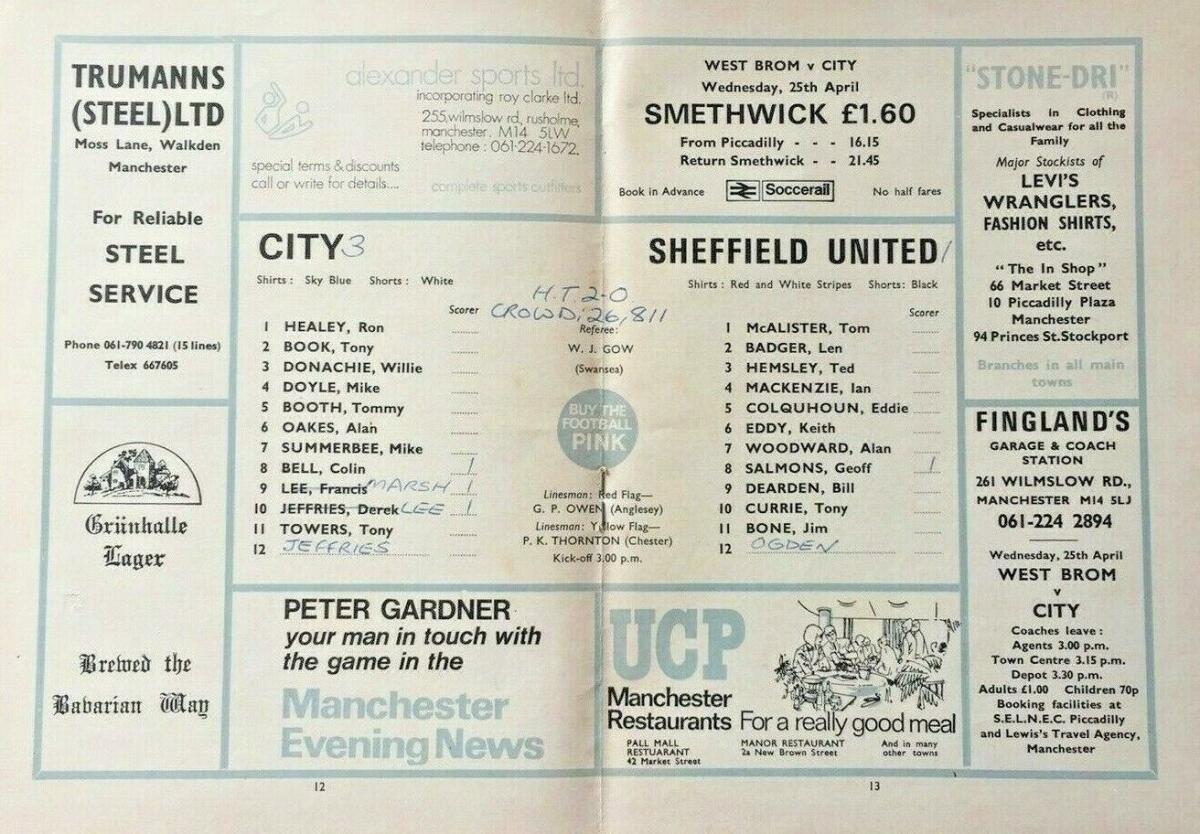 TRUMANNS
(STEEL) LTD
Moss Lane, Walkden
Manchester
For Reliable
STEEL
SERVICE
Phone 061-790 4821 (15 lines)
Telex 667605
Grünhalle
Lager
Brewed the
Bavarian Way
alexander sports ltd.
incorporating roy clarke ltd.
255, wilmslow rd, rusholme,
manchester. M14 5LW
telephone : 061-224-1672.
special terms & discounts
call or write for details....
complete sports outfitters
WEST BROM v CITY
Wednesday, 25th April
SMETHWICK £1.60
From Piccadilly - - - 16.15
Return Smethwick - - 21.45
Book in Advance
Soccerail
No half fares
CITY 3
Shirts : Sky Blue Shorts : White
Scorer
1 HEALEY, Ron
2 BOOK, Tony
3 DONACHIE, Willie
4 DOYLE, Mike
5 BOOTH, Tommy
6 OAKES, Alan
7 SUMMERBEE, Mike
8 BELL, Colin 1
9 LEE, Francis MARSH 1
10 JEFFRIES, Derek LEE 1
11 TOWERS, Tony
12 JEFFRIES
H.T. 2-0
CROWD: 26,811
Referee:
W. J. GOW
(Swansea)
BUY THE
FOOTBALL
PINK
Linesman: Red Flag—
G. P. OWEN (Anglesey)
Linesman: Yellow Flag—
P. K. THORNTON (Chester)
Kick-off 3.00 p.m.
SHEFFIELD UNITED 1
Shirts : Red and White Stripes Shorts: Black
Scorer
1 McALISTER, Tom
2 BADGER, Len
3 HEMSLEY, Ted
4 MACKENZIE, Ian
5 COLQUHOUN, Eddie
6 EDDY, Keith
7 WOODWARD, Alan
8 SALMONS, Geoff 1
9 DEARDEN, Bill
10 CURRIE, Tony
11 BONE, Jim
12 OGDEN
PETER GARDNER
your man in touch with
the game in the
Manchester
Evening News
UCP
Manchester
Restaurants
For a really good meal
PALL MALL
RESTUARANT
42 Market Street
MANOR RESTAURANT
2a New Brown Street
And in many
other towns
"STONE-DRI"
(R)
Specialists in Clothing
and Casualwear for all the
Family
Major Stockists of
LEVI'S
WRANGLERS,
FASHION SHIRTS,
etc.
"The In Shop"
66 Market Street
10 Piccadilly Plaza
Manchester
94 Princes St. Stockport
Branches in all main
towns
FINGLAND'S
GARAGE & COACH
STATION
261 WILMSLOW RD.,
MANCHESTER M14 5LJ
061-224 2894
Wednesday, 25th April
WEST BROM
v
CITY
Coaches leave :
Agents 3.00 p.m.
Town Centre 3.15 p.m.
Depot 3.30 p.m.
Adults £1.00 Children 70p
Booking facilities at
S.E.L.N.E.C. Piccadilly
and Lewis's Travel Agency,
Manchester
12
13